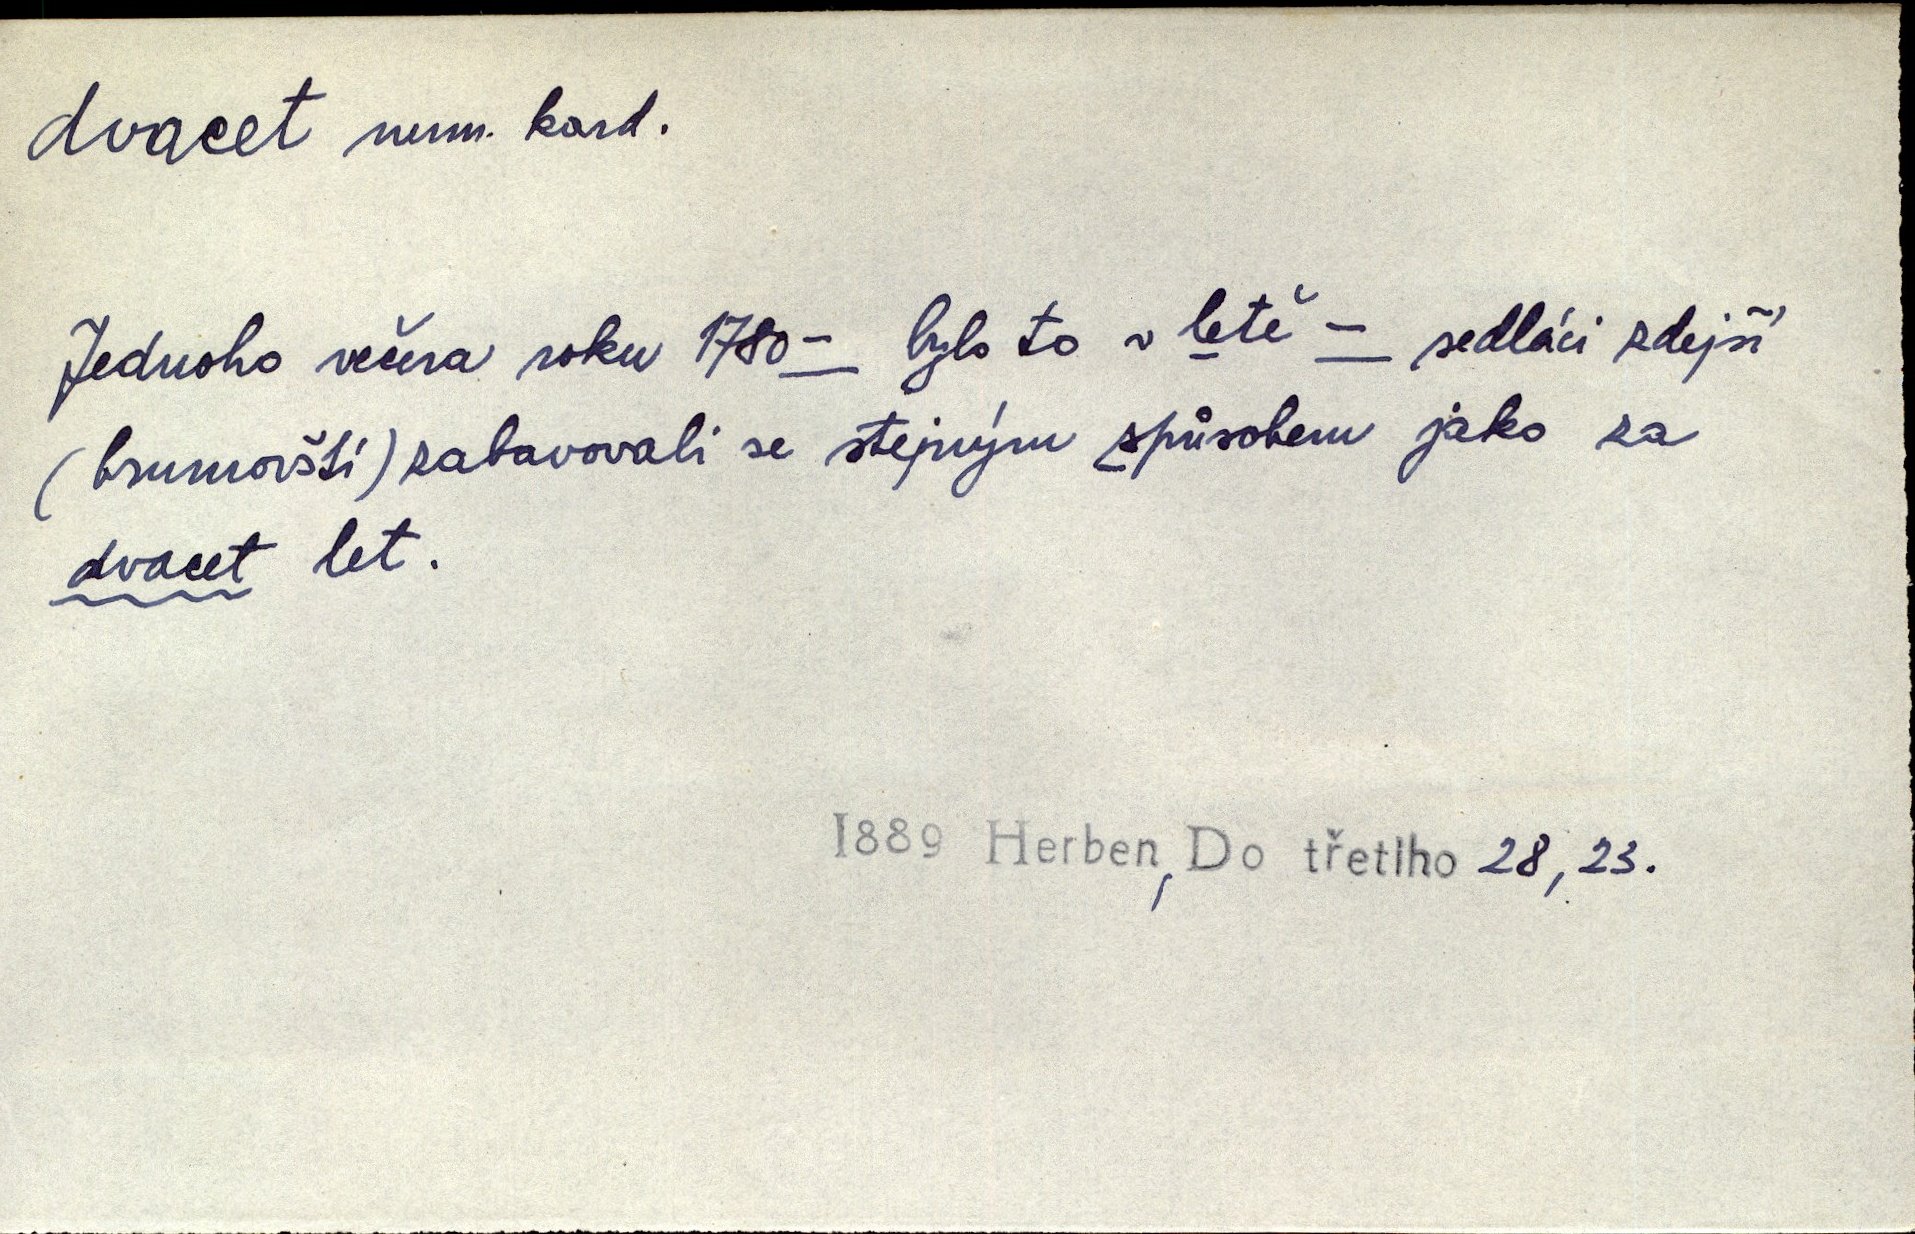 dvacet num. kard.
Jednoho večera roku 1780 – bylo to v letě – sedláci zdejší
(brumovští) zabavovali se stejným spůsobem jako za
dvacet let.
1889 Herben, Do třetího 28, 23.